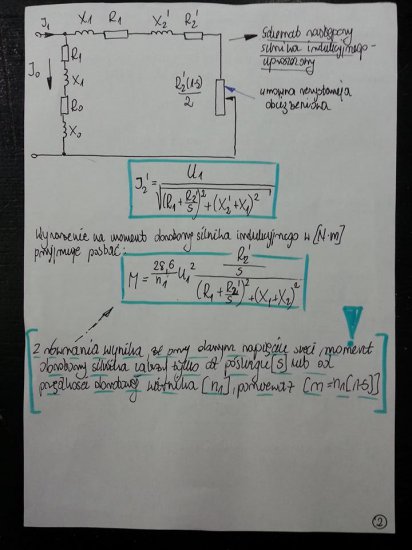 I₁ X₁ R₁ X₂' R₂'
Schemat zastępczy
silnika indukcyjnego -
uproszczony
I₀ R₁
X₁
R₀
X₀
R₂'(1-s)
2
umowna rezystancja
obciążenia
I₂' = U₁ / √((R₁ + R₂'/s)² + (X₂' + X₁)²)
Wyrażenie na moment obrotowy silnika indukcyjnego w [N·m]
przyjmuje postać:
M = 28,6/n₁ U₁² (R₂'/s) / ((R₁ + R₂'/s)² + (X₁ + X₂)²)
Z równania wynika, że przy danym napięciu sieci, moment
obrotowy silnika zależy tylko od poślizgu [s] lub od
prędkości obrotowej wirnika [n₁], ponieważ [m = n₁(1-s)]
2